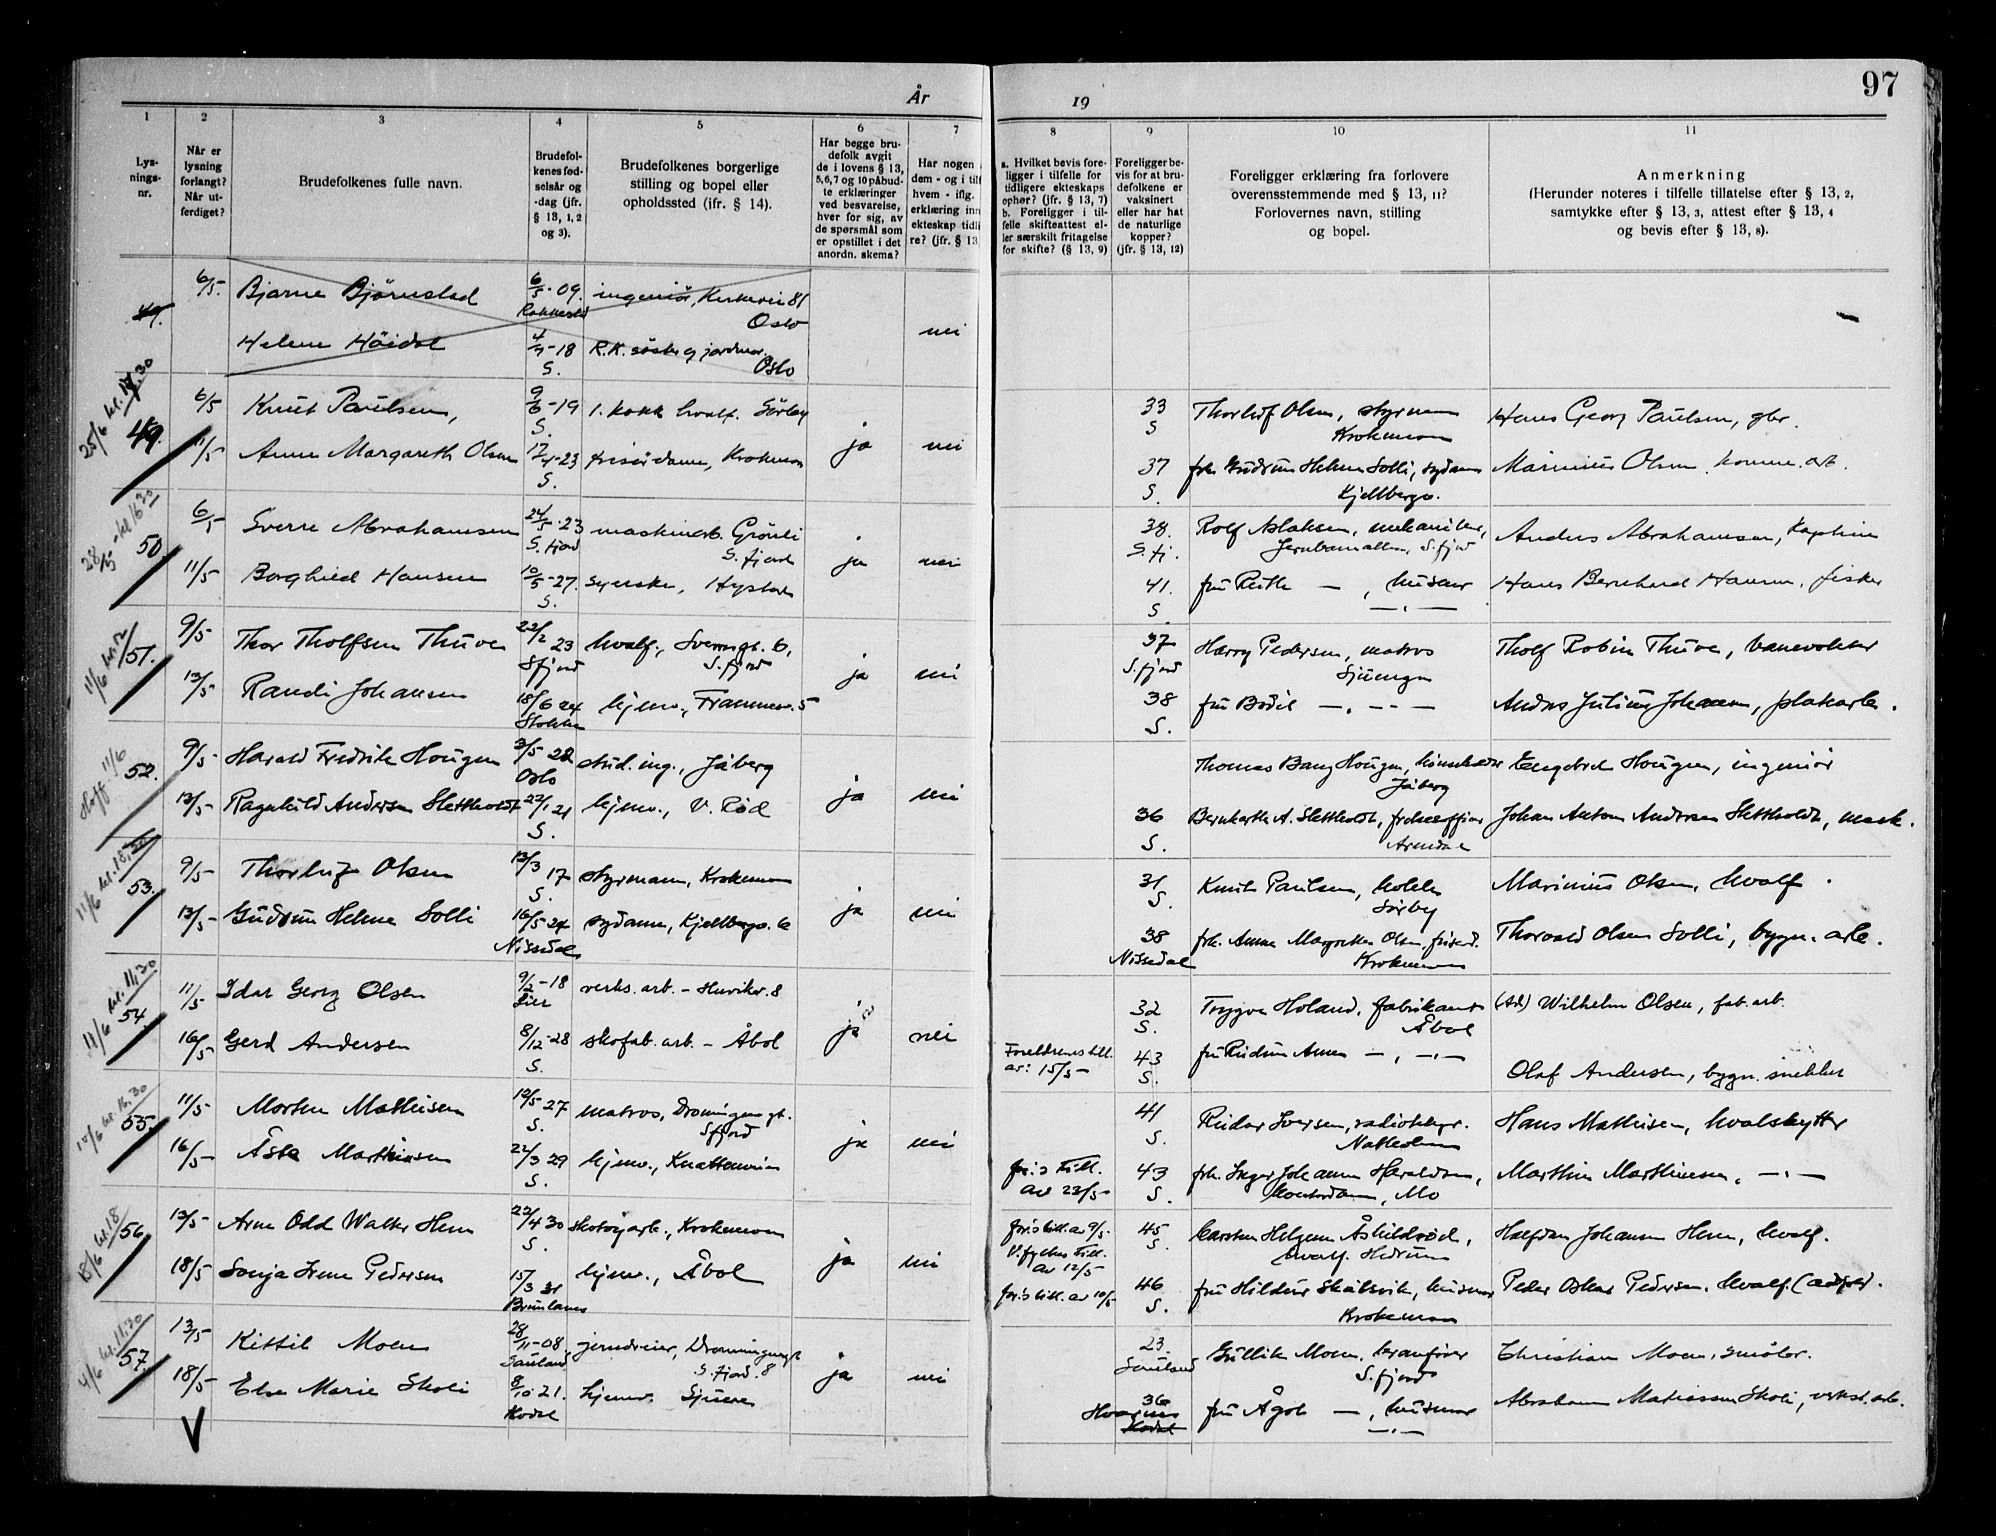 97
År
19
1
2
3
4
5
6
7
8
9
10
11
Lys-
nings-
nr.
Når er
lysning
forlangt?
Når ut-
ferdiget?
Brudefolkenes fulle navn.
Brudefol-
kenes fød-
selsår og
-dag (jfr.
§ 13, 1, 2
og 3).
Brudefolkenes borgerlige
stilling og bopel eller
opholdssted (ifr. § 14).
Har begge bru-
defolk avgit
de i lovens § 13,
5,6,7 og 10 påbud-
te erklæringer
ved besvarelse,
hver for sig, av
de spørsmål som
er opstillet i det
anordn. skema?
Har nogen
dem - og i tilf
hvem - iflg.
erklæring inn
ekteskap tidli
re? (jfr. § 13,
a. Hvilket bevis fore-
ligger i tilfelle for
tidligere ekteskaps
ophør? (jfr. § 13, 7)
b. Foreligger i til-
felle skifteattest el-
ler særskilt fritagelse
for skifte? (§ 13, 9)
Foreligger be-
vis for at bru-
defolkene er
vaksinert
eller har hat
de naturlige
kopper?
(jfr. § 13, 12)
Foreligger erklæring fra forlovere
overensstemmende med § 13, 11?
Forlovernes navn, stilling
og bopel.
Anmerkning
(Herunder noteres i tilfelle tillatelse efter § 13, 2,
samtykke efter § 13, 3, attest efter § 13, 4
og bevis efter § 13, 8).
6/5. Bjarne Bjørnstad 6/5-09. ingeniør, Kirkevei 81
Oslo
nei
Helene Høidal 4/7-18 R.K. søster og jordmor.
S. Oslo
25/6 kl. 17.30
49. 6/5 Knut Paulsen, 9/6-19 1. kokk hvalf. Sørby
S.
11/5 Anne Margareth Olsen 12/4-23 frisørdame, Krokemoa ja nei
S.
33 Thorleif Olsen, styrmann Hans Georg Paulsen, gbr.
S Krokemoa
37 frk. Gudrun Helene Solli, sydame Marinius Olsen, komm. arb.
S. Kjellbergv.
28/5 - kl 16.30
50 6/5 Sverre Abrahamsen 24/5-23 maskinarb. Grønli
S. fjord S. fjord ja nei
11/5 Borghild Hansen 10/5-27. syerske, Hystad
S.
38. Rolf Aslaksen, mekaniker, Anders Abrahamsen, Kaptein
S. fj. Jernbanealleen, S. fjord
41. fru Ruth — , husmor Hans Bernhard Hansen, fisker
S — . —
11/6
51. 9/5 Thor Tholfsen Thuve 22/2 23 hvalf., Sverresgt. 6,
Sfjord S. fjord ja nei
13/5 Randi Johansen 18/6 24 hjemv., Framnesv. 5
Stokke
37 Harry Pedersen, matros Tholf Robin Thuve, banevokter
S. fjord
38 fru Bodil — . - — Anders Julius Johansen, platearb.
S.
11/6
52. 9/5 Harald Fredrik Hougen 3/5 22 stud. ing., Jåberg
Oslo ja nei
13/5 Ragnhild Andersen Slettholdt 27/1 21 hjemv., V. Rød
S.
Thomas Bang Hougen, Engebret Hougen, ingeniør
Jåberg
36 A. Slettholdt, Johan Anton Andersen Slettholdt, mask.
S. Arendal
53. 9/5 Thorleif Olsen 12/3 17 styrmann, Krokemoa
S. ja nei
13/5 Gudrun Helene Solli 16/5-24 sydame, Kjellbergv. 6
Nissedal
31 Knut Paulsen, kokk Marinius Olsen, hvalf.
S. Sørby
38 frk. Anne Margrethe Olsen, Thorvald Olsen Solli, bygn. arb.
Nissedal Krokemoa
11/6 kl. 11,30
54. 11/5 Idar Georg Olsen 9/2-18 verks. arb. - Huvikv. 8
Lier
16/5 Gerd Andersen 8/12-28 skofab. arb. - Åbol ja nei
S.
32 Trygve Holand, fabrikant (Ad) Wilhelm Olsen, fab. arb.
S. Åbol
Foreldrenes till. 43 — , — . —
av: 15/5 — S. Olaf Andersen, bygn. snekker
kl. 16.30
55. 11/5 Morten Mathisen 12/5 27 matros, Dronningensgt.
S. Sfjord ja nei
16/5 Åsta Marthinsen 22/3 29 hjemv., Knattenveien
S.
41 Reidar Iversen, Hans Mathisen, hvalskytter
S.
for.s till. 43 frk. Inger Johanne Haraldsen, Marthin Marthinsen, — . —
av 23/5 — S. kontordame, Mo
18/6 kl. 18
56. 13/5 Arne Odd Walter Hem 22/4 30 skotøyarb., Krokemoa
S. ja nei
18/5 Sonja Irene Pedersen 15/3 31 hjemv., Åbol
Brunlanes
for.s till. av 9/5. 45 Carsten Helgem Åshildrød, Halfdan Johansen Hem, hvalf.
V. fylkes till. S. hvalf. Hedrum
av 12/5
for.s till. av 10/5 46 fru Hildur Skålsvik, husmor Peder Oskar Pedersen, hvalf. (adopt.
S. Krokemoa
4/6 kl. 11,30
57. 13/5 Kittil Moen 28/11-08, jerndreier, Dronningensgt
Sauland S. fjord. 8 ja nei
18/5 Else Marie Skoli 8/10 21. hjemv.
Kodal
23. Gullik Moen, kranfører Christian Moen, smører.
Sauland S. fjord
36 fru Ågot — , husmor Abraham Mathiassen Skoli, verkst. arb.
Hvarnes — . —
Kodal
V